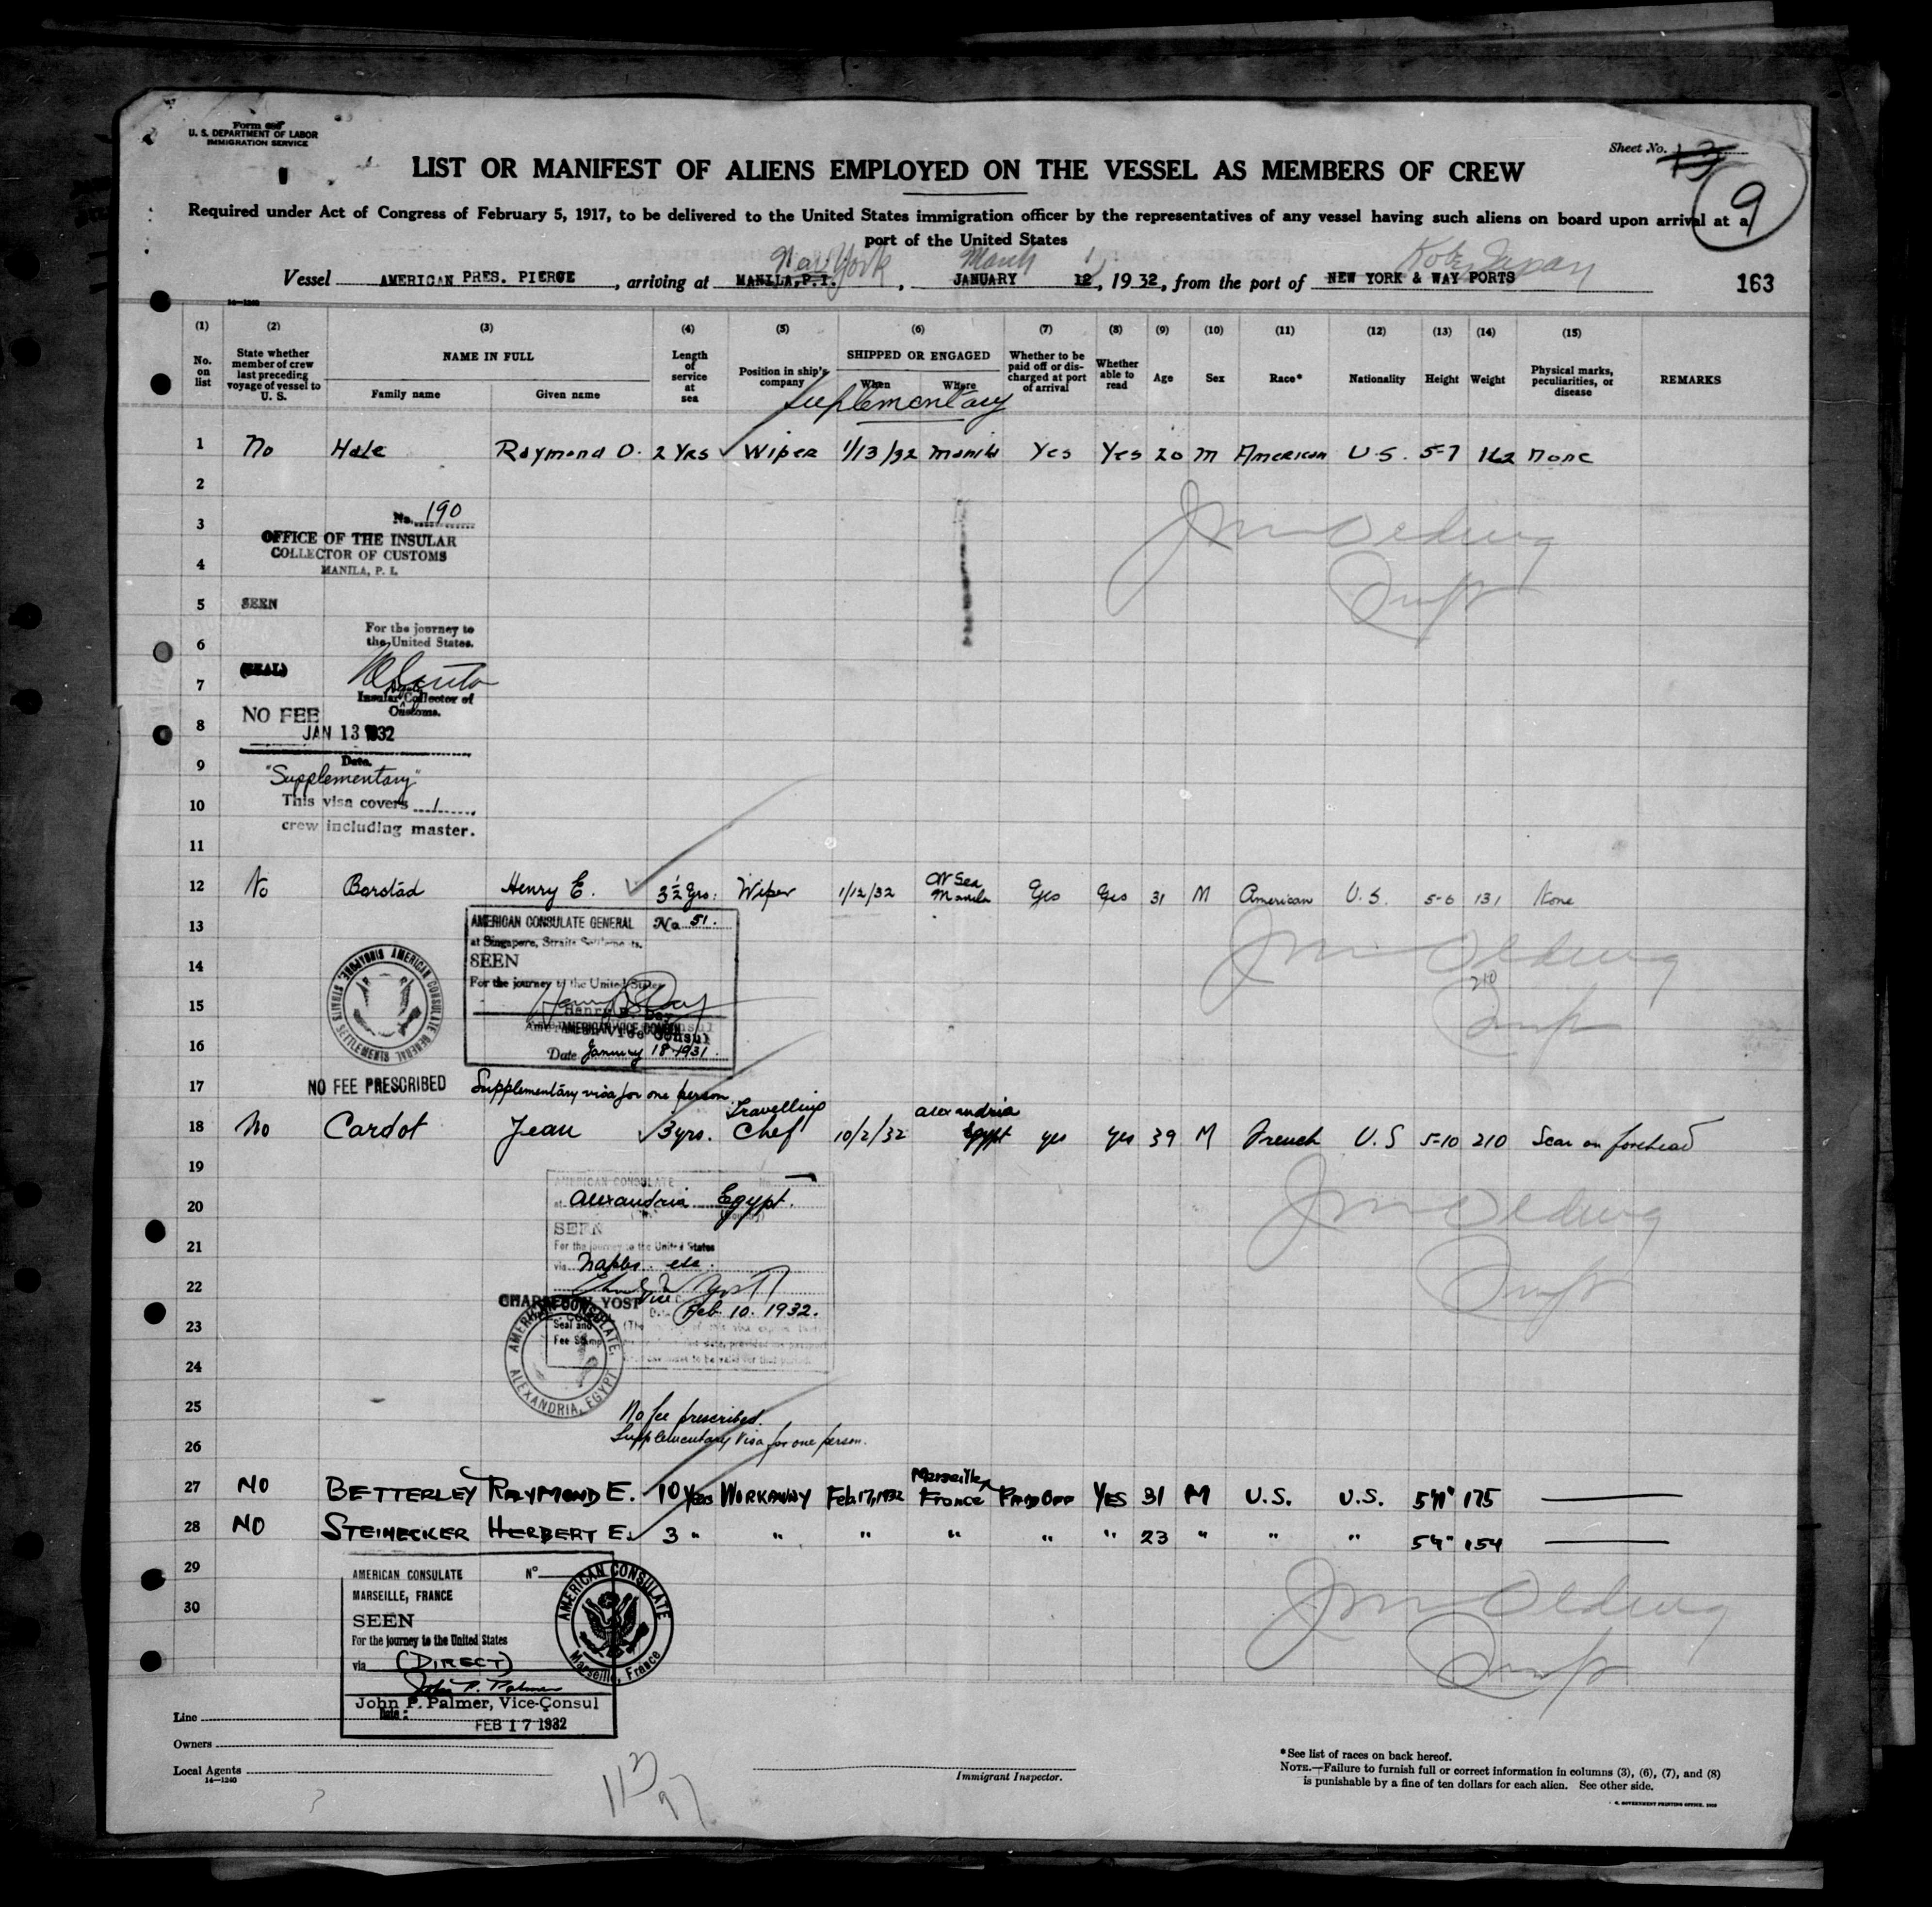 Form 689
U. S. DEPARTMENT OF LABOR
IMMIGRATION SERVICE
Sheet No. 13
9
LIST OR MANIFEST OF ALIENS EMPLOYED ON THE VESSEL AS MEMBERS OF CREW
Required under Act of Congress of February 5, 1917, to be delivered to the United States immigration officer by the representatives of any vessel having such aliens on board upon arrival at a
port of the United States
New York March 1 Kobe Japan
Vessel AMERICAN PRES. PIERCE, arriving at MANILA, P.I., JANUARY 12, 1932, from the port of NEW YORK & WAY PORTS 163
14—1240
(1) (2) (3) (4) (5) (6) (7) (8) (9) (10) (11) (12) (13) (14) (15)
No. on list State whether member of crew last preceding voyage of vessel to U. S. NAME IN FULL Family name Given name Length of service at sea Position in ship's company SHIPPED OR ENGAGED When Where Whether to be paid off or discharged at port of arrival Whether able to read Age Sex Race* Nationality Height Weight Physical marks, peculiarities, or disease REMARKS
Suplementary
1 No Hale Raymond O. 2 Yrs Wiper 1/13/32 Manila Yes Yes 20 M American U.S. 5-7 162 None
2
3 No. 190
OFFICE OF THE INSULAR
COLLECTOR OF CUSTOMS
4 MANILA, P. I.
5 SEEN
For the journey to
6 the United States.
(SEAL)
7 Insular Collector of
Customs.
NO FEE
8 JAN 13 1932
Date.
9 "Supplementary"
10 This visa covers 1
crew including master.
11
12 No Barstad Henry E. 3½ yrs. Wiper 1/12/32 At Sea Manila Yes Yes 31 M American U.S. 5-6 131 None
13 AMERICAN CONSULATE GENERAL No 51.
at Singapore, Straits Settlements.
14 SEEN
210
For the journey to the United States
AMERICAN CONSULATE GENERAL SINGAPORE, STRAITS SETTLEMENTS
15 Henry B. Day
American Vice Consul
16 Date January 18 1931.
17 NO FEE PRESCRIBED Supplementary visa for one person
18 No Cardot Jean 3 yrs. Travelling Chef 10/2/32 Alexandria Egypt yes yes 39 M French U.S 5-10 210 Scar on forehead
19 AMERICAN CONSULATE No.
20 at Alexandria Egypt.
SEEN
21 For the journey to the United States
via Naples etc.
22 CHARLES W. YOST Vice
Feb. 10. 1932.
23 Seal and
Fee Stamp
24 AMERICAN CONSULATE, ALEXANDRIA, EGYPT
25 No fee prescribed.
26 Supplementary visa for one person.
27 NO BETTERLEY RAYMOND E. 10 YRS WORKAWAY Feb 17, 1932 Marseille France PAID OFF YES 31 M U.S. U.S. 5'11" 175
28 NO STEINECKER HERBERT E. 3 " " " " " " 23 " " " 5'9" 154
29 AMERICAN CONSULATE N°
MARSEILLE, FRANCE
30 SEEN
For the journey to the United States
via (DIRECT)
John P. Palmer
John P. Palmer, Vice-Consul
Date: FEB 17 1932
AMERICAN CONSULATE Marseille, France
Line
Owners
Local Agents
14—1240
Immigrant Inspector.
*See list of races on back hereof.
NOTE.—Failure to furnish full or correct information in columns (3), (6), (7), and (8)
is punishable by a fine of ten dollars for each alien. See other side.